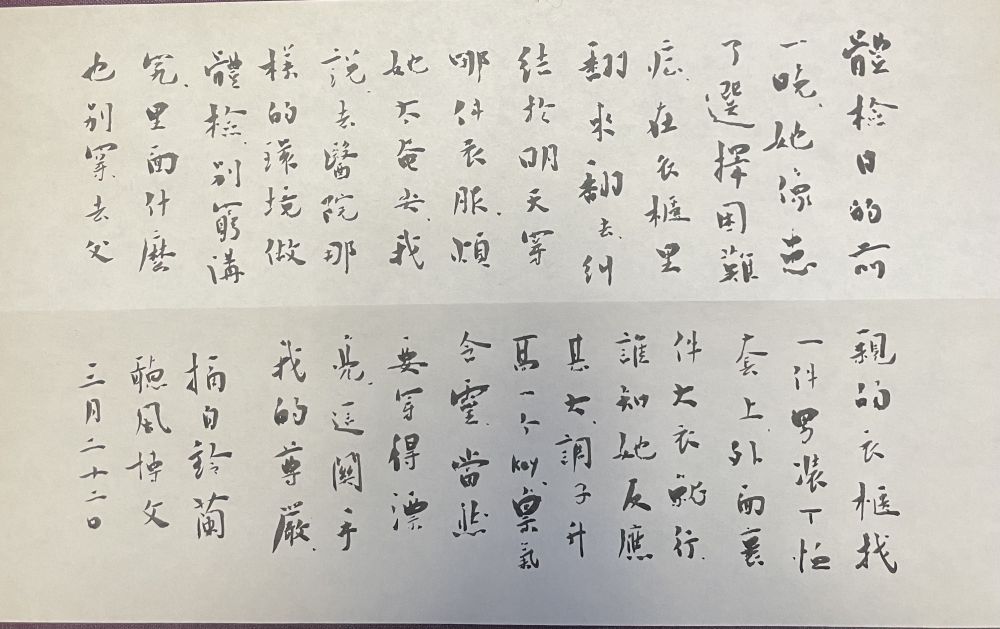 體檢日的前
一晚,她像患
了選擇困難
症,在衣櫃里
翻來翻去,糾
結於明天穿
哪件衣服,煩
她太奄尖,我
說,去醫院那
樣的環境做
體檢,別窮講
究,里面什麼
也別穿,去父
親的衣櫃找
一件男裝丅恤
套上,外面裹
件大衣就行。
誰知她反應
甚大,調子升
高一个key,稟氣
含靈,當然
要穿得漂
亮,這關乎
我的尊嚴。
摘自鈴蘭
聽風博文
三月二十二日